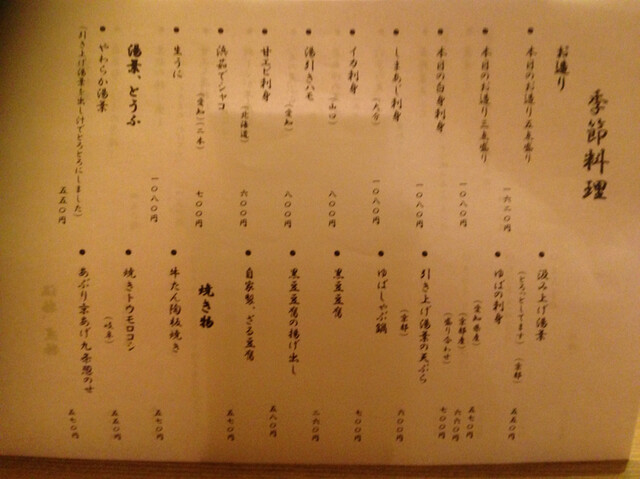 季節料理
お造り
本日のお造り五点盛り 一六二〇円
本日のお造り三点盛り 一〇八〇円
本日の白身刺身 一〇八〇円
しまあじ刺身（大分） 一〇八〇円
イカ刺身（山口） 八〇〇円
湯引きハモ（愛知） 八〇〇円
甘エビ刺身（北海道） 六〇〇円
浜茹でシャコ（愛知）（二本） 七〇〇円
生うに 一〇八〇円
湯葉、とうふ
やわらか湯葉
（引き上げ湯葉を出し汁でとろとろにしました） 五五〇円
汲み上げ湯葉
（とろっとしてます）（京都） 五五〇円
ゆばの刺身
（愛知県産） 五七〇円
（京都産） 六六〇円
（盛り合わせ） 七〇〇円
引き上げ湯葉の天ぷら（京都） 六〇〇円
ゆばしゃぶ鍋 七〇〇円
黒豆豆腐 二六〇円
黒豆豆腐の揚げ出し 五八〇円
自家製、ざる豆腐 五七〇円
焼き物
牛たん陶板焼き 五七〇円
焼きトウモロコシ（岐阜） 五五〇円
あぶり京あげ九条葱のせ 五七〇円